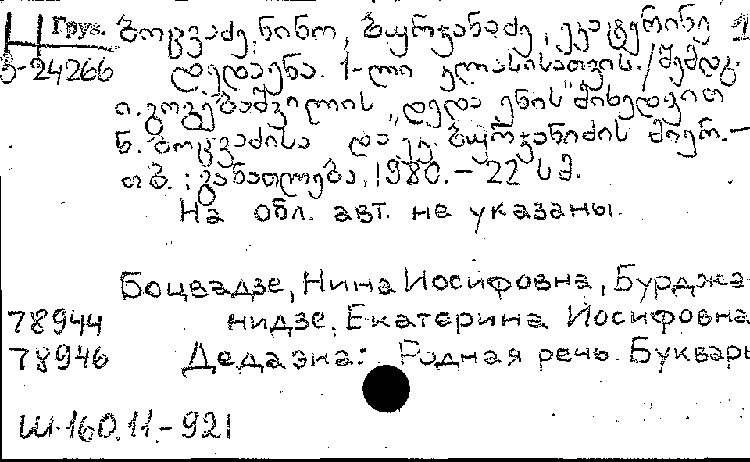 Груз. ბოცვაძე, ნინო, ბურჯანაძე, ეკატერინე 1
Э-24266 დედაენა. 1-ლი კლასისათვის. /შემდგ.
ი. გოგებაშვილის „დედა ენის“ მიხედვით
ნ. ბოცვაძისა და ეკ. ბურჯანიძის მიერ. —
თბ.: განათლება, 1980. — 22 სმ.
На обл. авт. не указаны.
Боцвадзе, Нина Иосифовна, Бурджа-
78944 нидзе, Екатерина Иосифовна
78946 Дедаэна: Родная речь. Букварь
Ш.160.11.-921